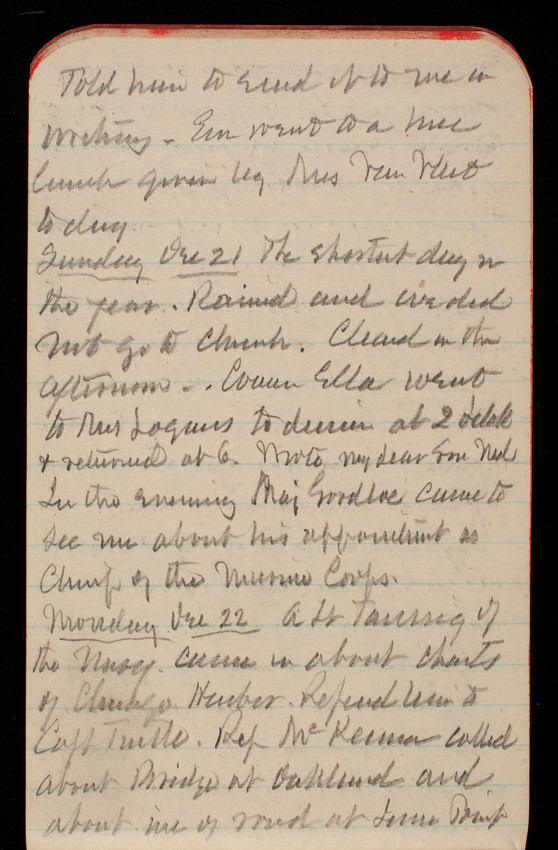 Told him to send it to me in
writing - Em went to a nice
lunch given by Mrs Van Vliet
today
Sunday Dec 21 The shortest day in
the year. Rained and we did
not go to church. Cleard in the
afternoon -. Cousin Ella went
to Mrs Logans to dinner at 2 oclk
& returned at 6. Wrote my dear Son Ned
In the evening Maj Goodloe came to
see me about his appointment as
Chief of the Marine Corps.
Monday Dec 22 A Lt Taussig of
the Navy came in about charts
of Chicago Harbor. Refered him to
Capt Tuttle. Rep McKenna called
about Bridge at Oakland and
about use of road at Lime Point